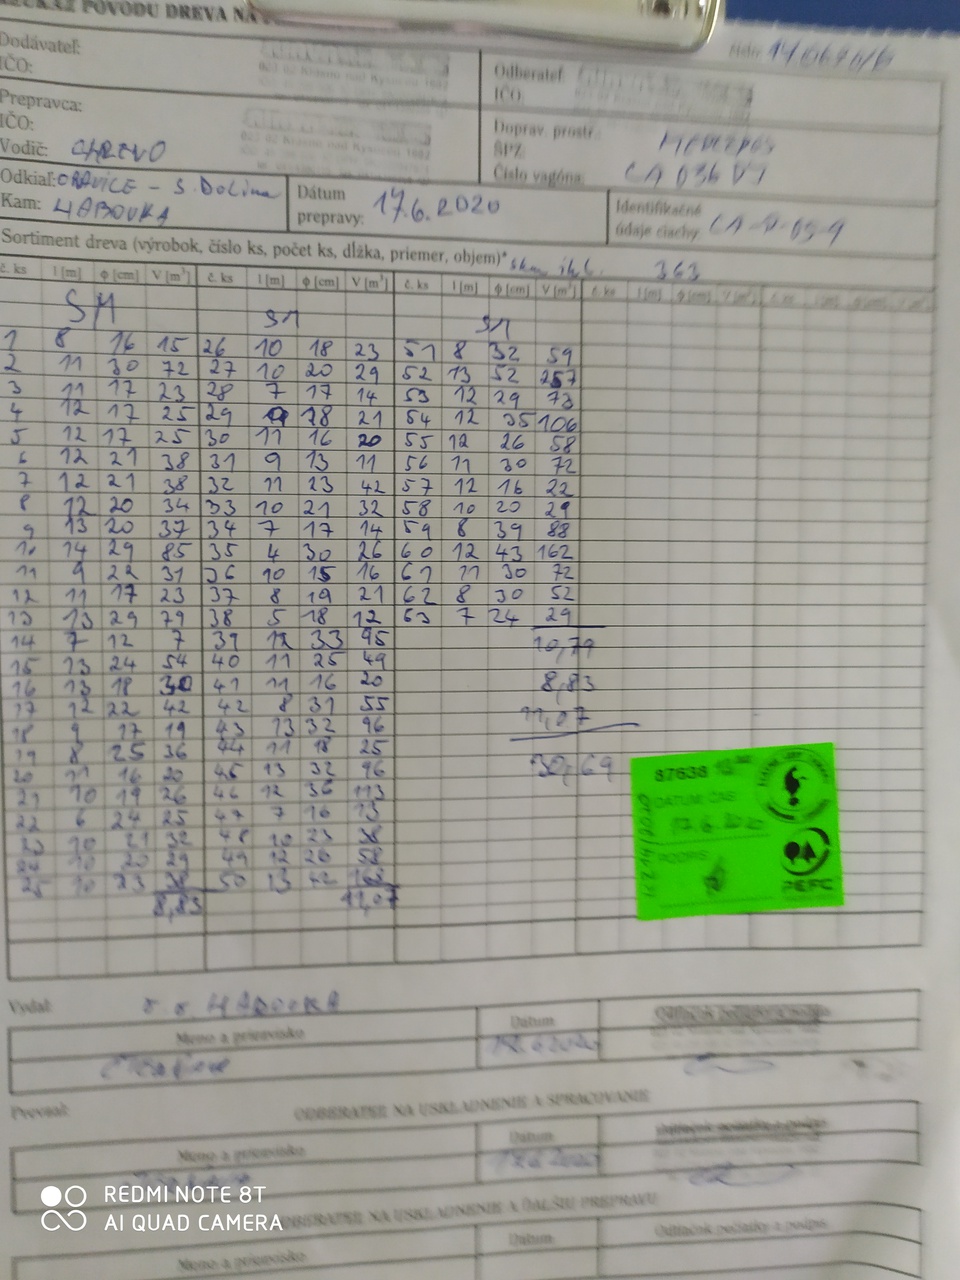 PÔVODU DREVA NA
číslo
Dodávateľ:
IČO:
Odberateľ
IČO:
Prepravca:
IČO:
Vodič: CHREVO
Doprav. prostr.
ŠPZ
Číslo vagóna: CA 036 VJ
Odkiaľ: ORAVICE - S. Dolina
Kam: HABOVKA
Dátum
prepravy: 17.6.2020
Identifikačné
údaje ciachy
Sortiment dreva (výrobok, číslo ks, počet ks, dĺžka, priemer, objem)* 363
č. ks l [m] ϕ [cm] V [m³] č. ks l [m] ϕ [cm] V [m³] č. ks l [m] ϕ [cm] V [m³] č. ks l [m] ϕ [cm] V [m³] č. ks
SM SM SM
1 8 16 15 26 10 18 23 51 8 32 59
2 11 30 72 27 10 20 29 52 13 52 257
3 11 17 23 28 7 17 14 53 12 29 73
4 12 17 25 29 9 18 21 54 12 35 106
5 12 17 25 30 11 16 20 55 12 26 58
6 12 21 38 31 9 13 11 56 11 30 72
7 12 21 38 32 11 23 42 57 12 16 22
8 12 20 34 33 10 21 32 58 10 20 29
9 13 20 37 34 7 17 14 59 8 39 88
10 14 29 85 35 4 30 26 60 12 43 162
11 9 22 31 36 10 15 16 61 11 30 72
12 11 17 23 37 8 19 21 62 8 30 52
13 13 29 79 38 5 18 12 63 7 24 29
14 7 12 7 39 12 33 95 10,79
15 13 24 54 40 11 25 49
16 13 18 30 41 11 16 20 8,83
17 12 22 42 42 8 31 55
18 9 17 19 43 13 32 96 11,07
19 8 25 36 44 11 18 25
20 11 16 20 45 13 32 96 30,69
21 10 19 26 46 12 36 113
22 6 24 25 47 7 16 13
23 10 21 32 48 10 23 38
24 10 20 29 49 12 26 58
25 10 23 38 50 13 42 163
8,83 11,07
87638
DÁTUM, ČAS:
17.6.2020
PODPIS:
PEFC
Vydal: HABOVKA
Meno a priezvisko Dátum
Prevzal: ODBERATEĽ NA USKLADNENIE A SPRACOVANIE
Meno a priezvisko Dátum
ODBERATEĽ NA USKLADNENIE A ĎALŠIU PREPRAVU
Dátum
REDMI NOTE 8T
AI QUAD CAMERA